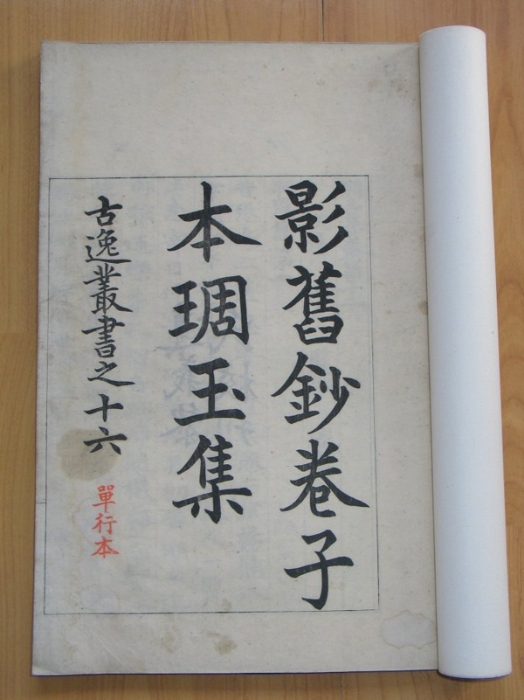 影舊鈔卷子
本琱玉集
古逸叢書之十六
單行本